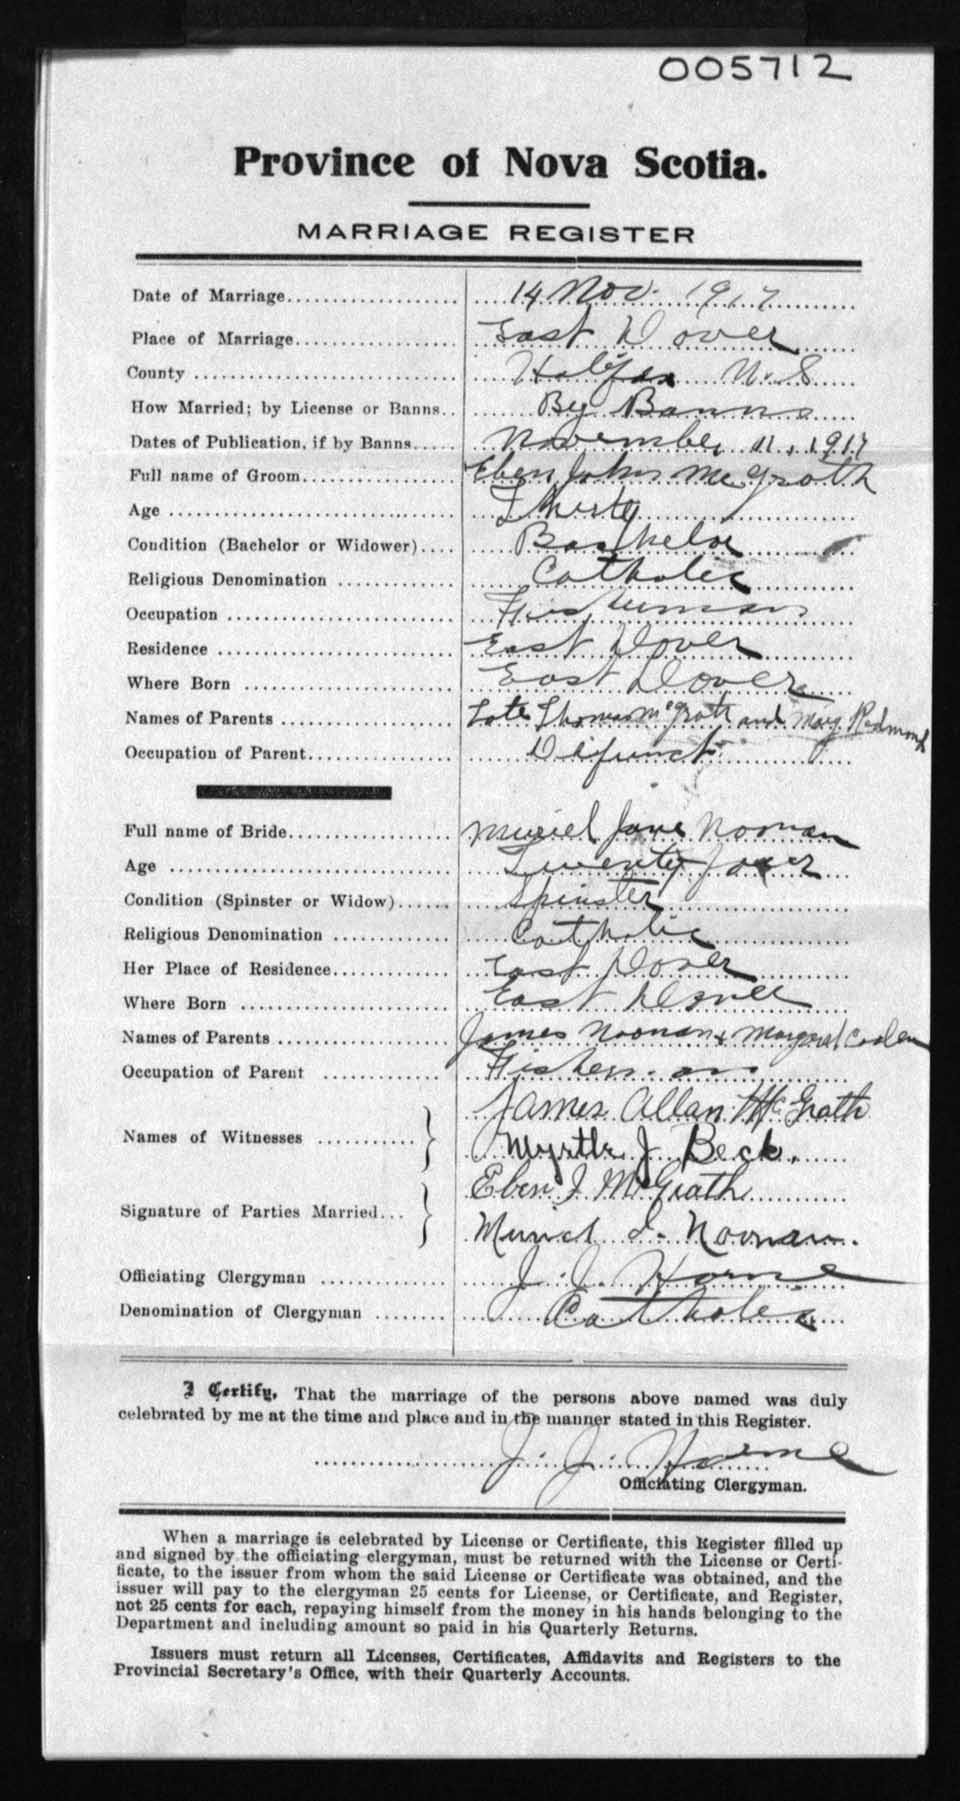 005712
Province of Nova Scotia.
MARRIAGE REGISTER
Date of Marriage 14 Nov. 1917
Place of Marriage East Dover
County Halifax N.S
How Married; by License or Banns By Banns
Dates of Publication, if by Banns November 11, 1917
Full name of Groom Eben John McGrath
Age Thirty
Condition (Bachelor or Widower) Bachelor
Religious Denomination Catholic
Occupation Fisherman
Residence East Dover
Where Born East Dover
Names of Parents Late Thomas McGrath and Mary Redmond
Occupation of Parent Defunct
Full name of Bride Muriel Jane Noonan
Age Twenty four
Condition (Spinster or Widow) Spinster
Religious Denomination Catholic
Her Place of Residence East Dover
Where Born East Dover
Names of Parents James Noonan & Margaret Coolen
Occupation of Parent Fisherman
Names of Witnesses James Allan McGrath
Myrtle J Beck.
Signature of Parties Married Eben J McGrath
Muriel J. Noonan.
Officiating Clergyman J. J. Horne
Denomination of Clergyman Catholic
I Certify, That the marriage of the persons above named was duly
celebrated by me at the time and place and in the manner stated in this Register.
J. J. Horne
Officiating Clergyman.
When a marriage is celebrated by License or Certificate, this Register filled up
and signed by the officiating clergyman, must be returned with the License or Certi-
ficate, to the issuer from whom the said License or Certificate was obtained, and the
issuer will pay to the clergyman 25 cents for License, or Certificate, and Register,
not 25 cents for each, repaying himself from the money in his hands belonging to the
Department and including amount so paid in his Quarterly Returns.
Issuers must return all Licenses, Certificates, Affidavits and Registers to the
Provincial Secretary's Office, with their Quarterly Accounts.